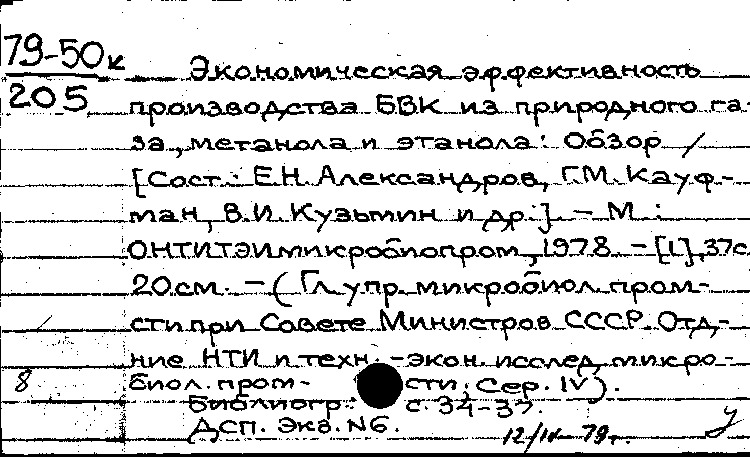 79-50к
205
Экономическая эффективность
производства БВК из природного га-
за, метанола и этанола: Обзор /
[Сост.: Е.Н. Александров, Г.М. Кауф-
ман, В.И. Кузьмин и др.]. – М.:
ОНТИТЭИмикробиопром, 1978. – [1], 37с.
20см. – (Гл. упр. микробиол. пром-
сти при Совете Министров СССР. Отд-
ние НТИ и техн.-экон. исслед. микро-
8 биол. пром-сти; Сер. IV).
Библиогр.: с. 34-37.
ДСП. Экз. N6.
12/IV-79г.